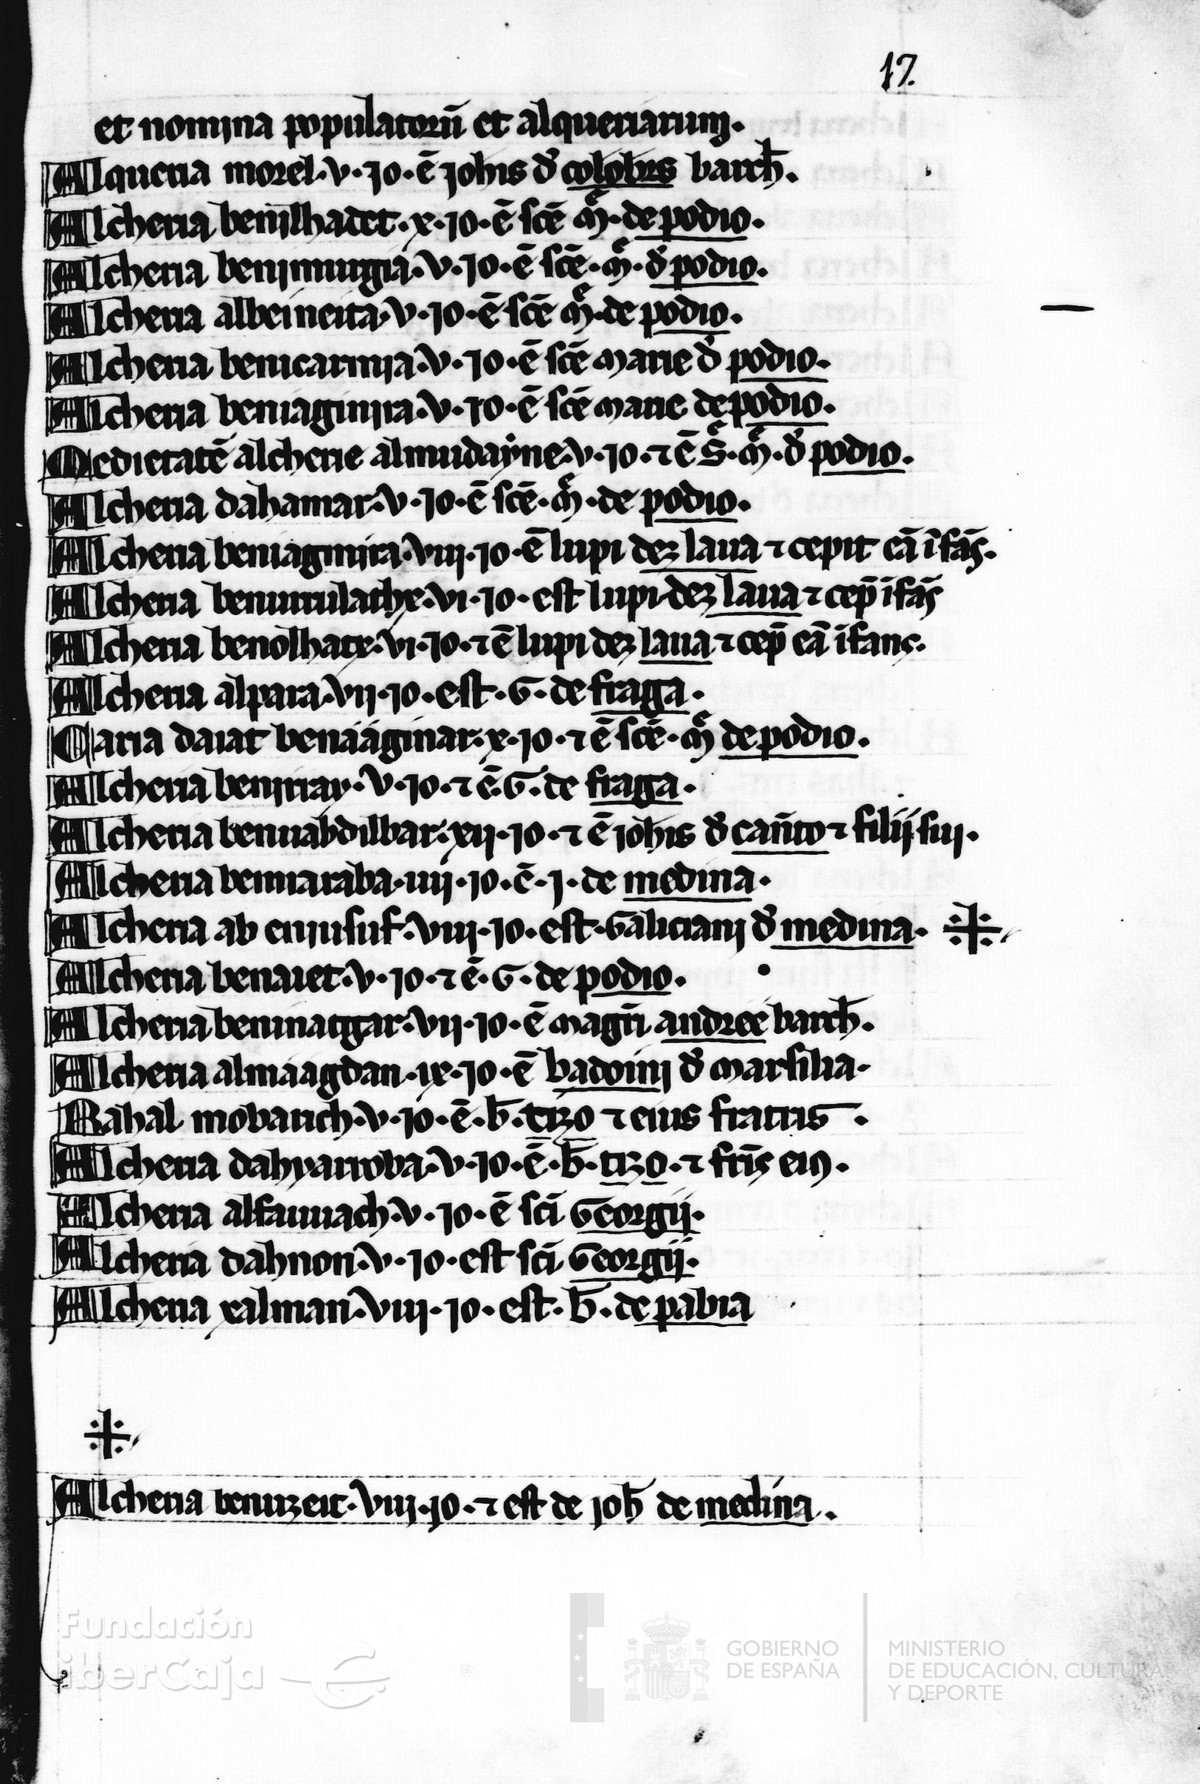 17.
et nomina populatorū et alqueriarum.
Alqueria morel. v. jo. ē johis d' colobrs barch.
Alcheria benilhadet. x. jo. ē scē m. de podio.
Alcheria benimurgia. v. jo. ē scē. m. d' podio.
Alcheria albeincita. v. jo. ē scē m. de podio.
Alcheria benicarmia. v. jo. ē scē marie d' podio.
Alcheria beniaginira. v. jo. ē scē marie de podio.
Medietatē alcherie almudayne. v. jo. ⁊ ē s. m. d' podio.
Alcheria dahamar. v. jo. ē scē. m. de podio.
Alcheria beniaginira. viii. jo. ē lupi dez laua ⁊ cepit eā ifās.
Alcheria. vi. jo. est lupi dez laua ⁊ cep̄ ifās
Alcheria benolhate. vi. jo. ⁊ ē lupi dez laua ⁊ cep̄ eā ifans.
Alcheria alpara. vii. jo. est. G. de fraga.
Caria daiat benaaginar. x. jo. ⁊ ē scē. m. de podio.
Alcheria. v. jo. ⁊ ē. G. de fraga.
Alcheria beniabdilbar. xii. jo. ⁊ ē johis d' can̄to ⁊ filij sui.
Alcheria beniaraba. iiij. jo. ē. j. de medina.
Alcheria ab eniusuf. viii. jo. est. Galiciani d' medina.
Alcheria benaiet. v. jo. ⁊ ē. G. de podio.
Alcheria beninatgar. vii. jo. ē magr̄i andree barch.
Alcheria almaagdan. ix. jo. ē badoini d' marsilia.
Rahal mobarich. v. jo. ē. b. tizo ⁊ eius fratris.
Alcheria dahyarroba. v. jo. ē. b. tizo. ⁊ fr̄is ei9.
Alcheria alfauuach. v. jo. ē sc̄i Georgij.
Alcheria dahnon. v. jo. est sc̄i Georgij.
Alcheria xalman. viii. jo. est. b. de pabia
Alcheria benizeit. viii. jo. ⁊ est de joh de medina.
Fundación
iberCaja
GOBIERNO
DE ESPAÑA
MINISTERIO
DE EDUCACIÓN, CULTURA
Y DEPORTE